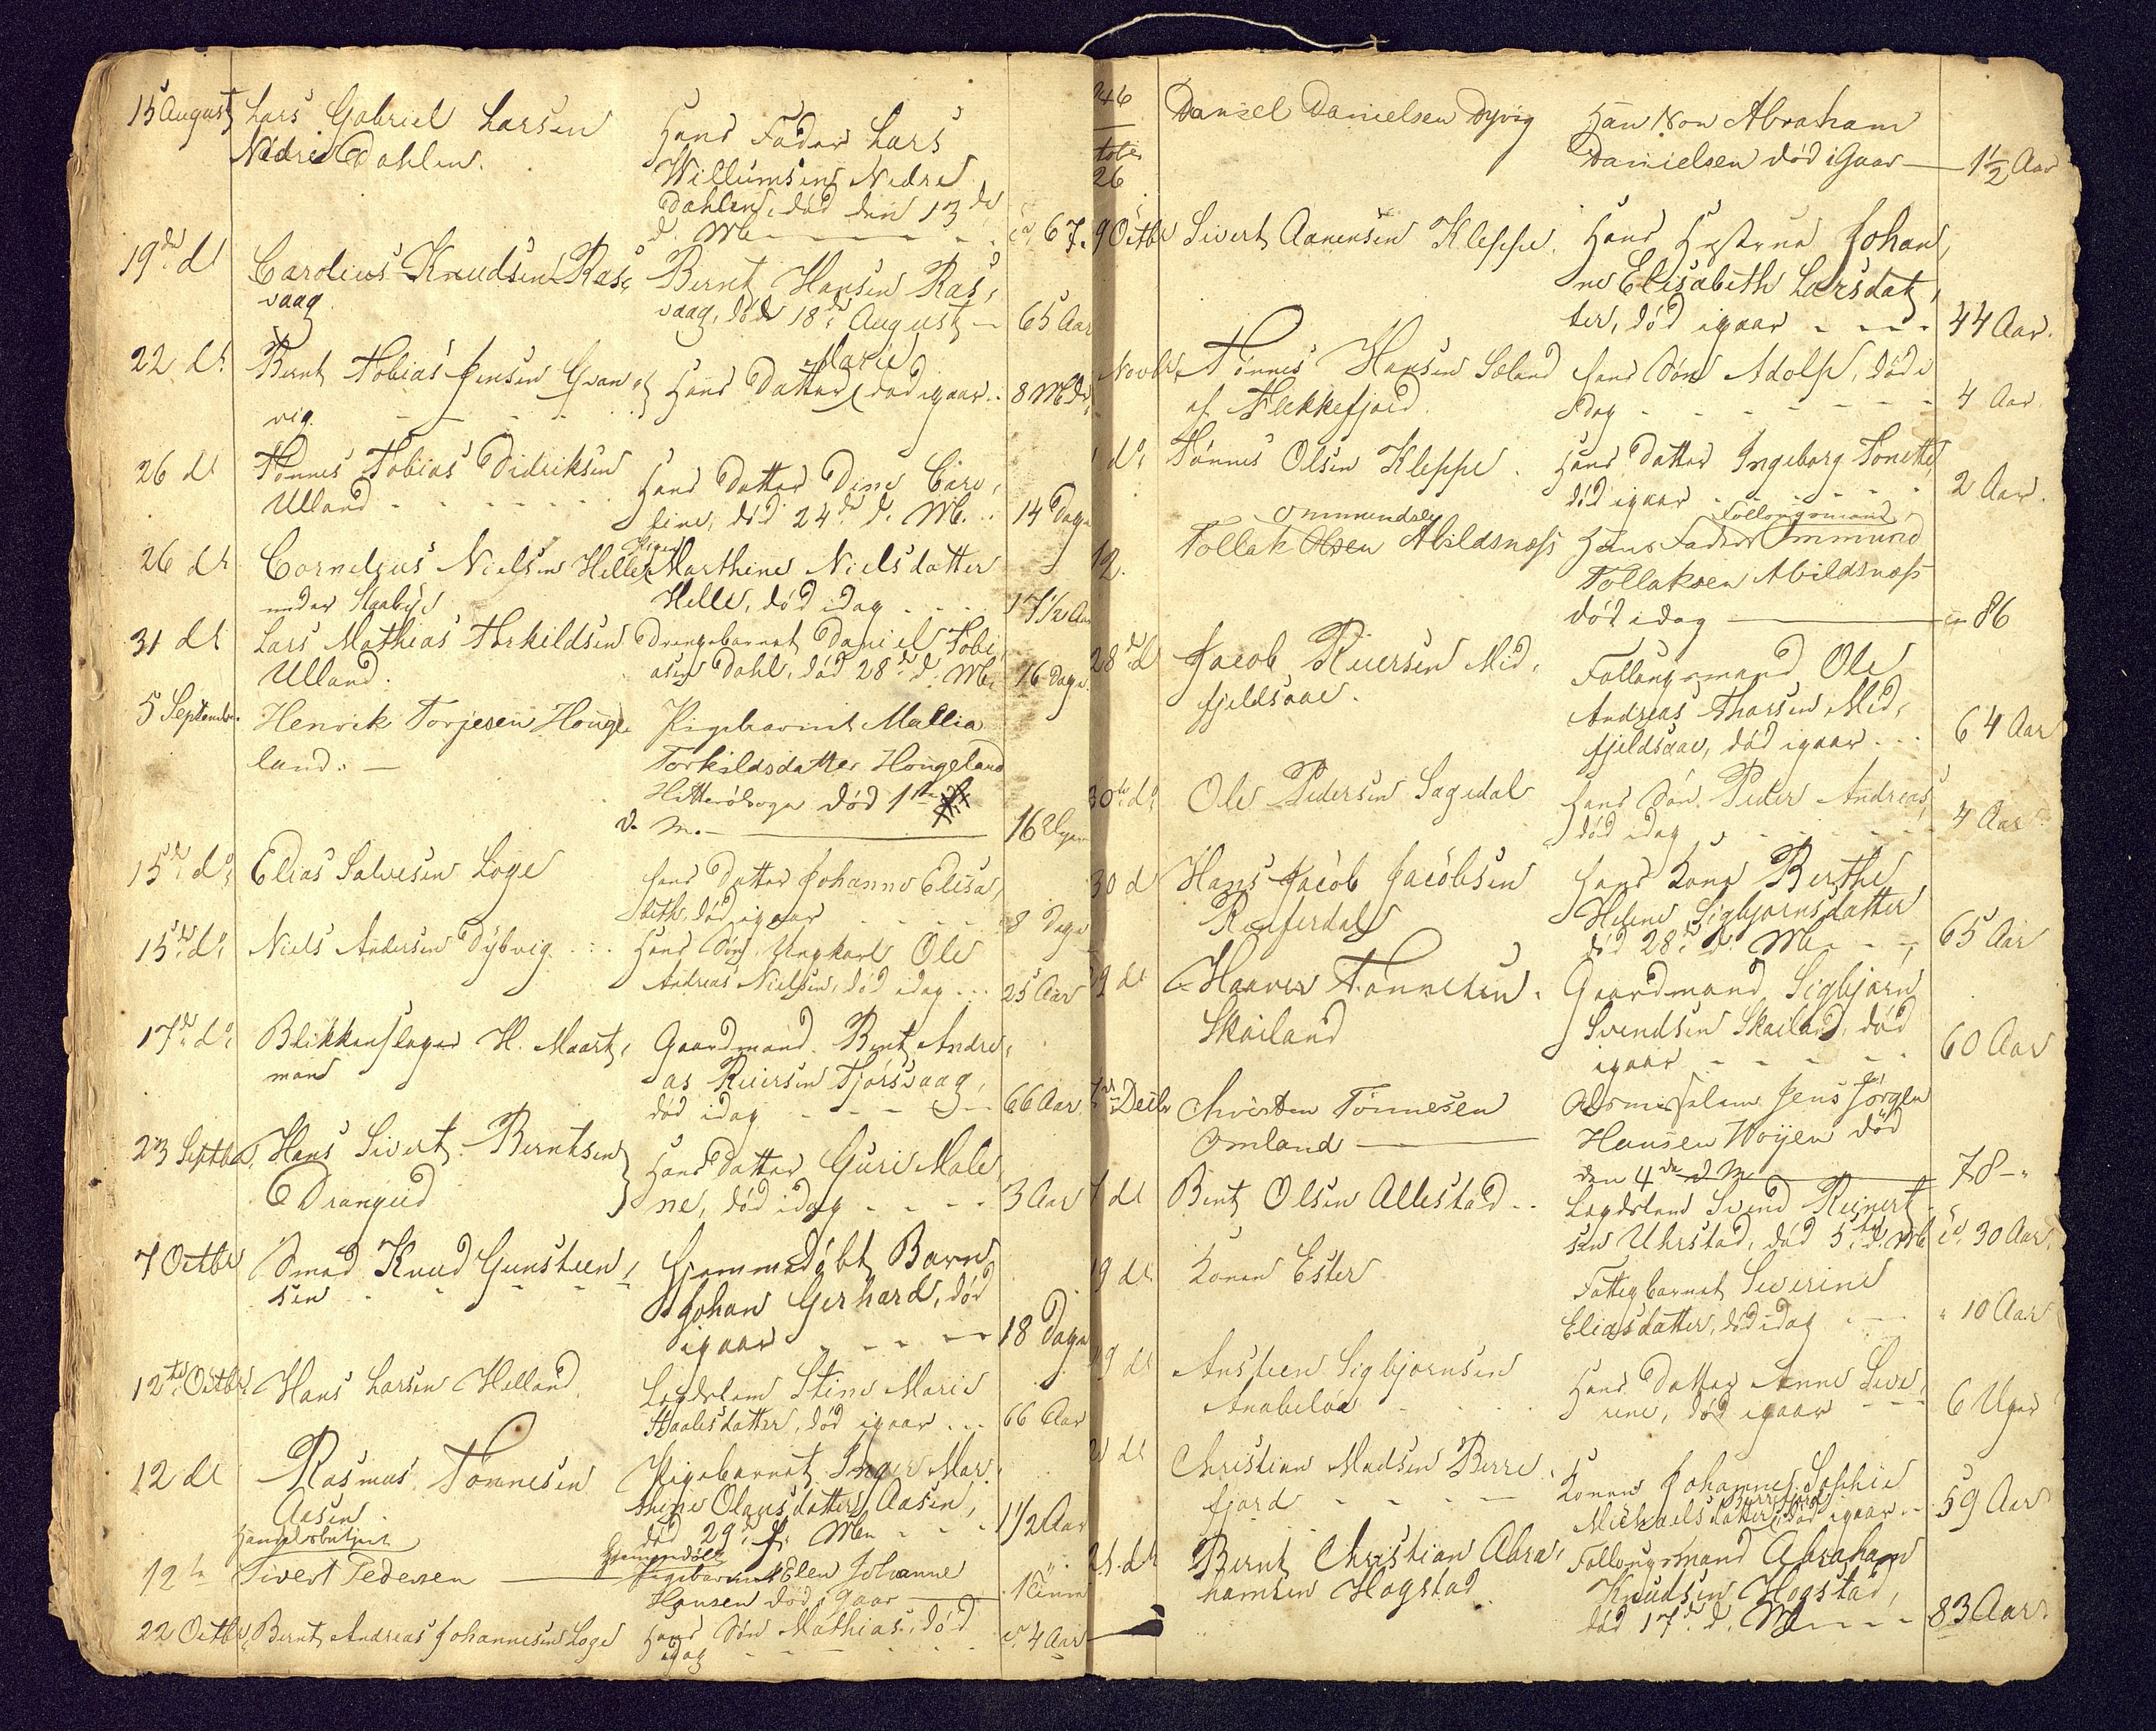 15 August Lars Gabriel Larsen
Nedre Dahlen.
Hans Fader Lars
Willumsen Nedre
Dahlen, død den 13de
d. M. - - - - - ca 67.
19de dt Carolius Knudsen Ras-
vaag.
Bernt Hansen Ras-
vaag, død 18de August - 65 Aar
22 dt. Bernt Tobias Jensen Gran-
vig.
Marie
Hans Datter død igaar.. 8 Mdr
26 dt Tønnes Tobias Didriksen
Ulland - - - - -
Hans Datter Dine Caro-
line, død 24de d. M. .. 14 Dage
26 dt Cornelius Nielsen Helle
under Staby
Pigen
Marthine Nielsdatter
Helle, død idag . . . . 17 1/2 Aar
31 dt Lars Mathias Torkildsen
Ulland.
Drengebarnet Daniel Tobi-
asen Dahl, død 28de d. M. 16 Dage
5 September. Henrik Torjesen Houge-
land. —
Pigebarnet Mallia
Torkildsdatter Hougeland
Hitterø Sogn død 1ste
d. M. — 16 Uger
15de do. Elias Salvesen Loge
Hans Datter Johanne Elisa-
beth, død igaar - - - - 8 Dage
15de do. Niels Andersen Dybvig . .
Hans Søn, Ungkarl Ole
Andreas Nielsen, død idag ... 25 Aar
17de do. Blikkenslager H. Maart-
man
Gaardmand. Bernt Andre-
as Reiersen Fjørsvaag,
død idag - - - - 66 Aar.
23 Septbr. Hans Sivert Berntsen
Drangeid
Hans Datter Guri Male-
ne, død idag - - - - 3 Aar
7 Octbr Smed Knud Gunsteen-
sen - - - -
Hjemmedøbt Barn
Johan Gerhard, død
igaar - - - - 18 Dage
12te Octbr. Hans Larsen Helland.
Lægdslem Stine Marie
Staalesdatter, død igaar ... 66 Aar
12 dt Rasmus Tønnesen
Aasen.
Pigebarnet Inger Mar-
thine Olausdatter Aasen,
død 29de f. M. - - - 1 1/2 Aar
12te Handelsbetjent
Sivert Pedersen
Hjemmedøbt
Pigebarnet Elen Johanne
Hansen død i Gaar — 1
22 Octbr. Bernt Andreas Johannesen Loge
Hans Søn Mathias, død
idag - - - - ca. 4 Aar
26
26
Daniel Danielsen Dyvig
Han Søn Abraham
Danielsen død i Gaar — 1 1/2 Aar
9 Octbr Sivert Aanensen Kleppe.
Hans Hustrue Johan-
ne Elisabeth Larsdat-
ter, død igaar - - - - 44 Aar.
Novbr. Tønnes Hansen Sæland
af Flekkefjord.
Hans Søn Adolf, død i
dag - - - - - - 4 Aar
do. Tønnes Olsen Kleppe .
Hans Datter Ingeborg Tonette
død igaar - - - - - 2 Aar.
12. Ommundsen
Tollak Abildsnæss
Follougsmand
Hans Fader Ommund
Tollaksen Abildsnæss
død idag — 86
28de dt Jacob Reiersen Mid-
fjeldsaae.
Follougsmand Ole
Andreas Thorsen Mid-
fjeldsaae, død igaar ... 64 Aar
30te do. Ole Pedersen Sagedal
Hans Søn Peder Andreas,
død idag - - - - - 4 Aar
30 d Hans Jacob Jacobsen
Ramferdal
Hans Kone Berthe
Helene Sigbjørnsdatter
død 28de d. M. - - - 65 Aar
dt Haaver Tønnesen.
Skailand
Gaardmand Sigbjørn
Svendsen Skailand, død
igaar - - - - - 60 Aar
Decbr Chrsten Tønnesen
Omland —
Almisselem Jens Jørgen
Hansen Woyen død
den 4de d M — 78 - "
7 dt Bernt Olsen Allestad . .
Lægdslem Svend Reinert-
sen Uhrstad, død 5te d. M. ca. 30 Aar.
19 dt Konen Ester
Fattigbarnet Severine
Eliasdatter, død idag . — " 10 Aar
19 dt Austeen Sigbjørnsen
Anabeløe
Hans Datter Anne Seve-
rine, død igaar - - - 6 Uger
21 dt Christian Madsen Berre-
fjord - - - -
Konen Johanne Sophie
Berrefjord
Michaelsdatter, død igaar . . 59 Aar
21. dt Bernt Christian Abra-
hamsen Hogstad.
Follougsmand Abraham
Knudsen Hogstad,
død 17de d. M. - - - 83 Aar.